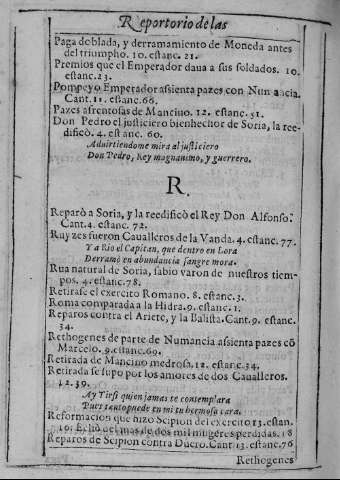 Reportorio de las
Paga doblada, y derramamiento de Moneda antes
del triumpho. 10. estanc. 21.
Premios que el Emperador daua a sus soldados. 10.
estanc. 23.
Pompeyo Emperador assienta pazes con Numancia.
Cant. 11. estanc. 66.
Pazes afrentosas de Mancino. 12. estanc. 51.
Don Pedro el justiciero bienhechor de Soria, la ree-
dificò. 4. estanc. 60.
Aduirtiendome mira al justiciero
Don Pedro, Rey magnanimo, y guerrero.
R.
Reparò a Soria, y la reedificò el Rey Don Alfonso.
Cant. 4. estanc. 72.
Ruyzes fueron Caualleros de la Vanda. 4. estanc. 77.
Y a Rio el Capitan, que dentro en Lora
Derramò en abundancia sangre mora.
Rua natural de Soria, sabio varon de nuestros tiem-
pos. 4. estanc. 78.
Retirase el exercito Romano. 8. estanc. 3.
Roma comparada a la Hidra. 9. estanc. 1.
Reparos contra el Ariete, y la Balista. Cant. 9. estanc.
34.
Rethogenes de parte de Numancia assienta pazes cō
Marcelo. 9. estanc. 69.
Retirada de Mancino medrosa. 12. estanc. 34.
Retirada se supo por los amores de dos Caualleros.
12. 39.
Ay Tirsi quien jamas te contemplara
Pues tanto puede en mi tu hermosa cara.
Reformacion que hizo Scipion del exercito 13. estan.
10. Echò del mas de dos mil mugeres perdidas. 18
Reparos de Scipion contra Duero. Cant. 13. estanc. 76
Rethogenes